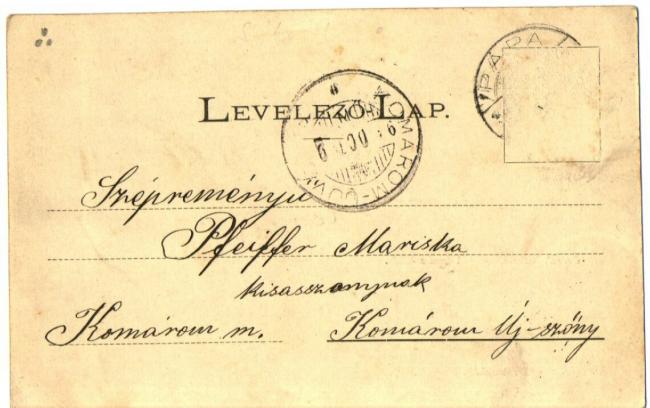 PÁPA
LEVELEZŐ LAP.
KOMÁROM-ÚJV
Szépreményű
Pfeiffer Mariska
kisasszonynak
Komárom m. Komárom Új-szőny